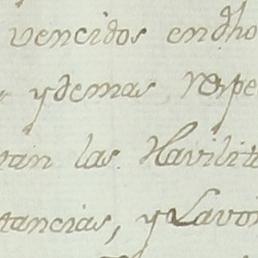 vencidos endho
y demas respe
tan las Havilita
tancias, y Lavo